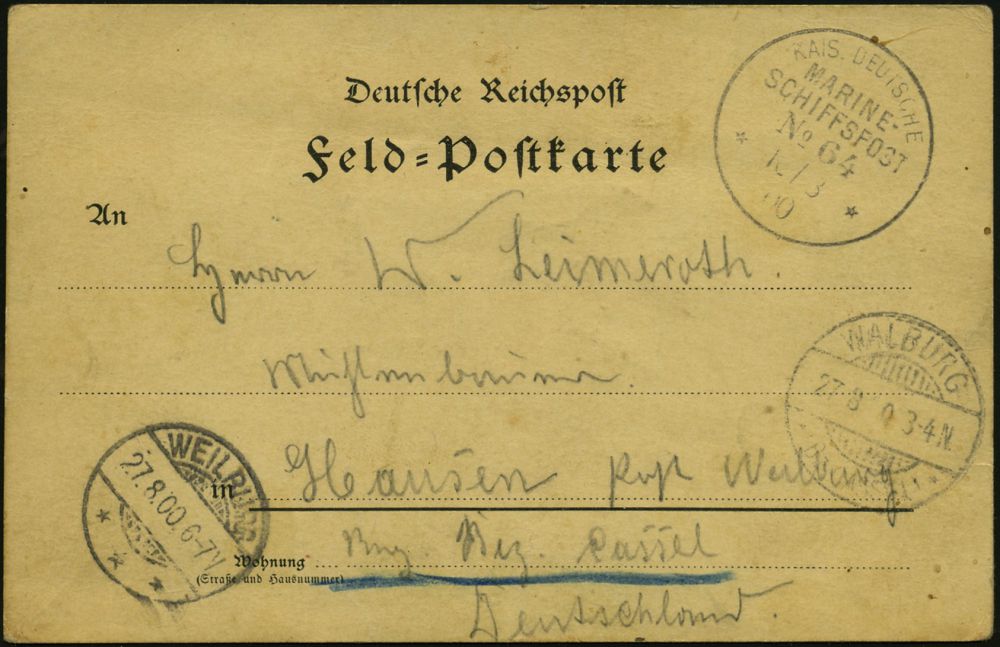 Deutsche Reichspost
Feld-Postkarte
KAIS. DEUTSCHE
MARINE-
SCHIFFSPOST
No 64
/8
00
An
Herrn W. Leimeroth.
Mühlenbauer.
WALBURG
27 8 0 3-4 N.
WEILBURG
27.8.00.6-7V
in
Hausen Post Walburg
Wohnung
(Straße und Hausnummer)
Bez. Cassel
Deutschland.